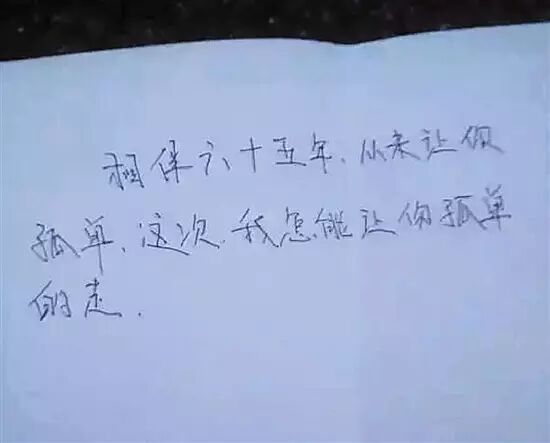 相保六十五年、从未让你
孤单、这次、我怎能让你孤单
的走.